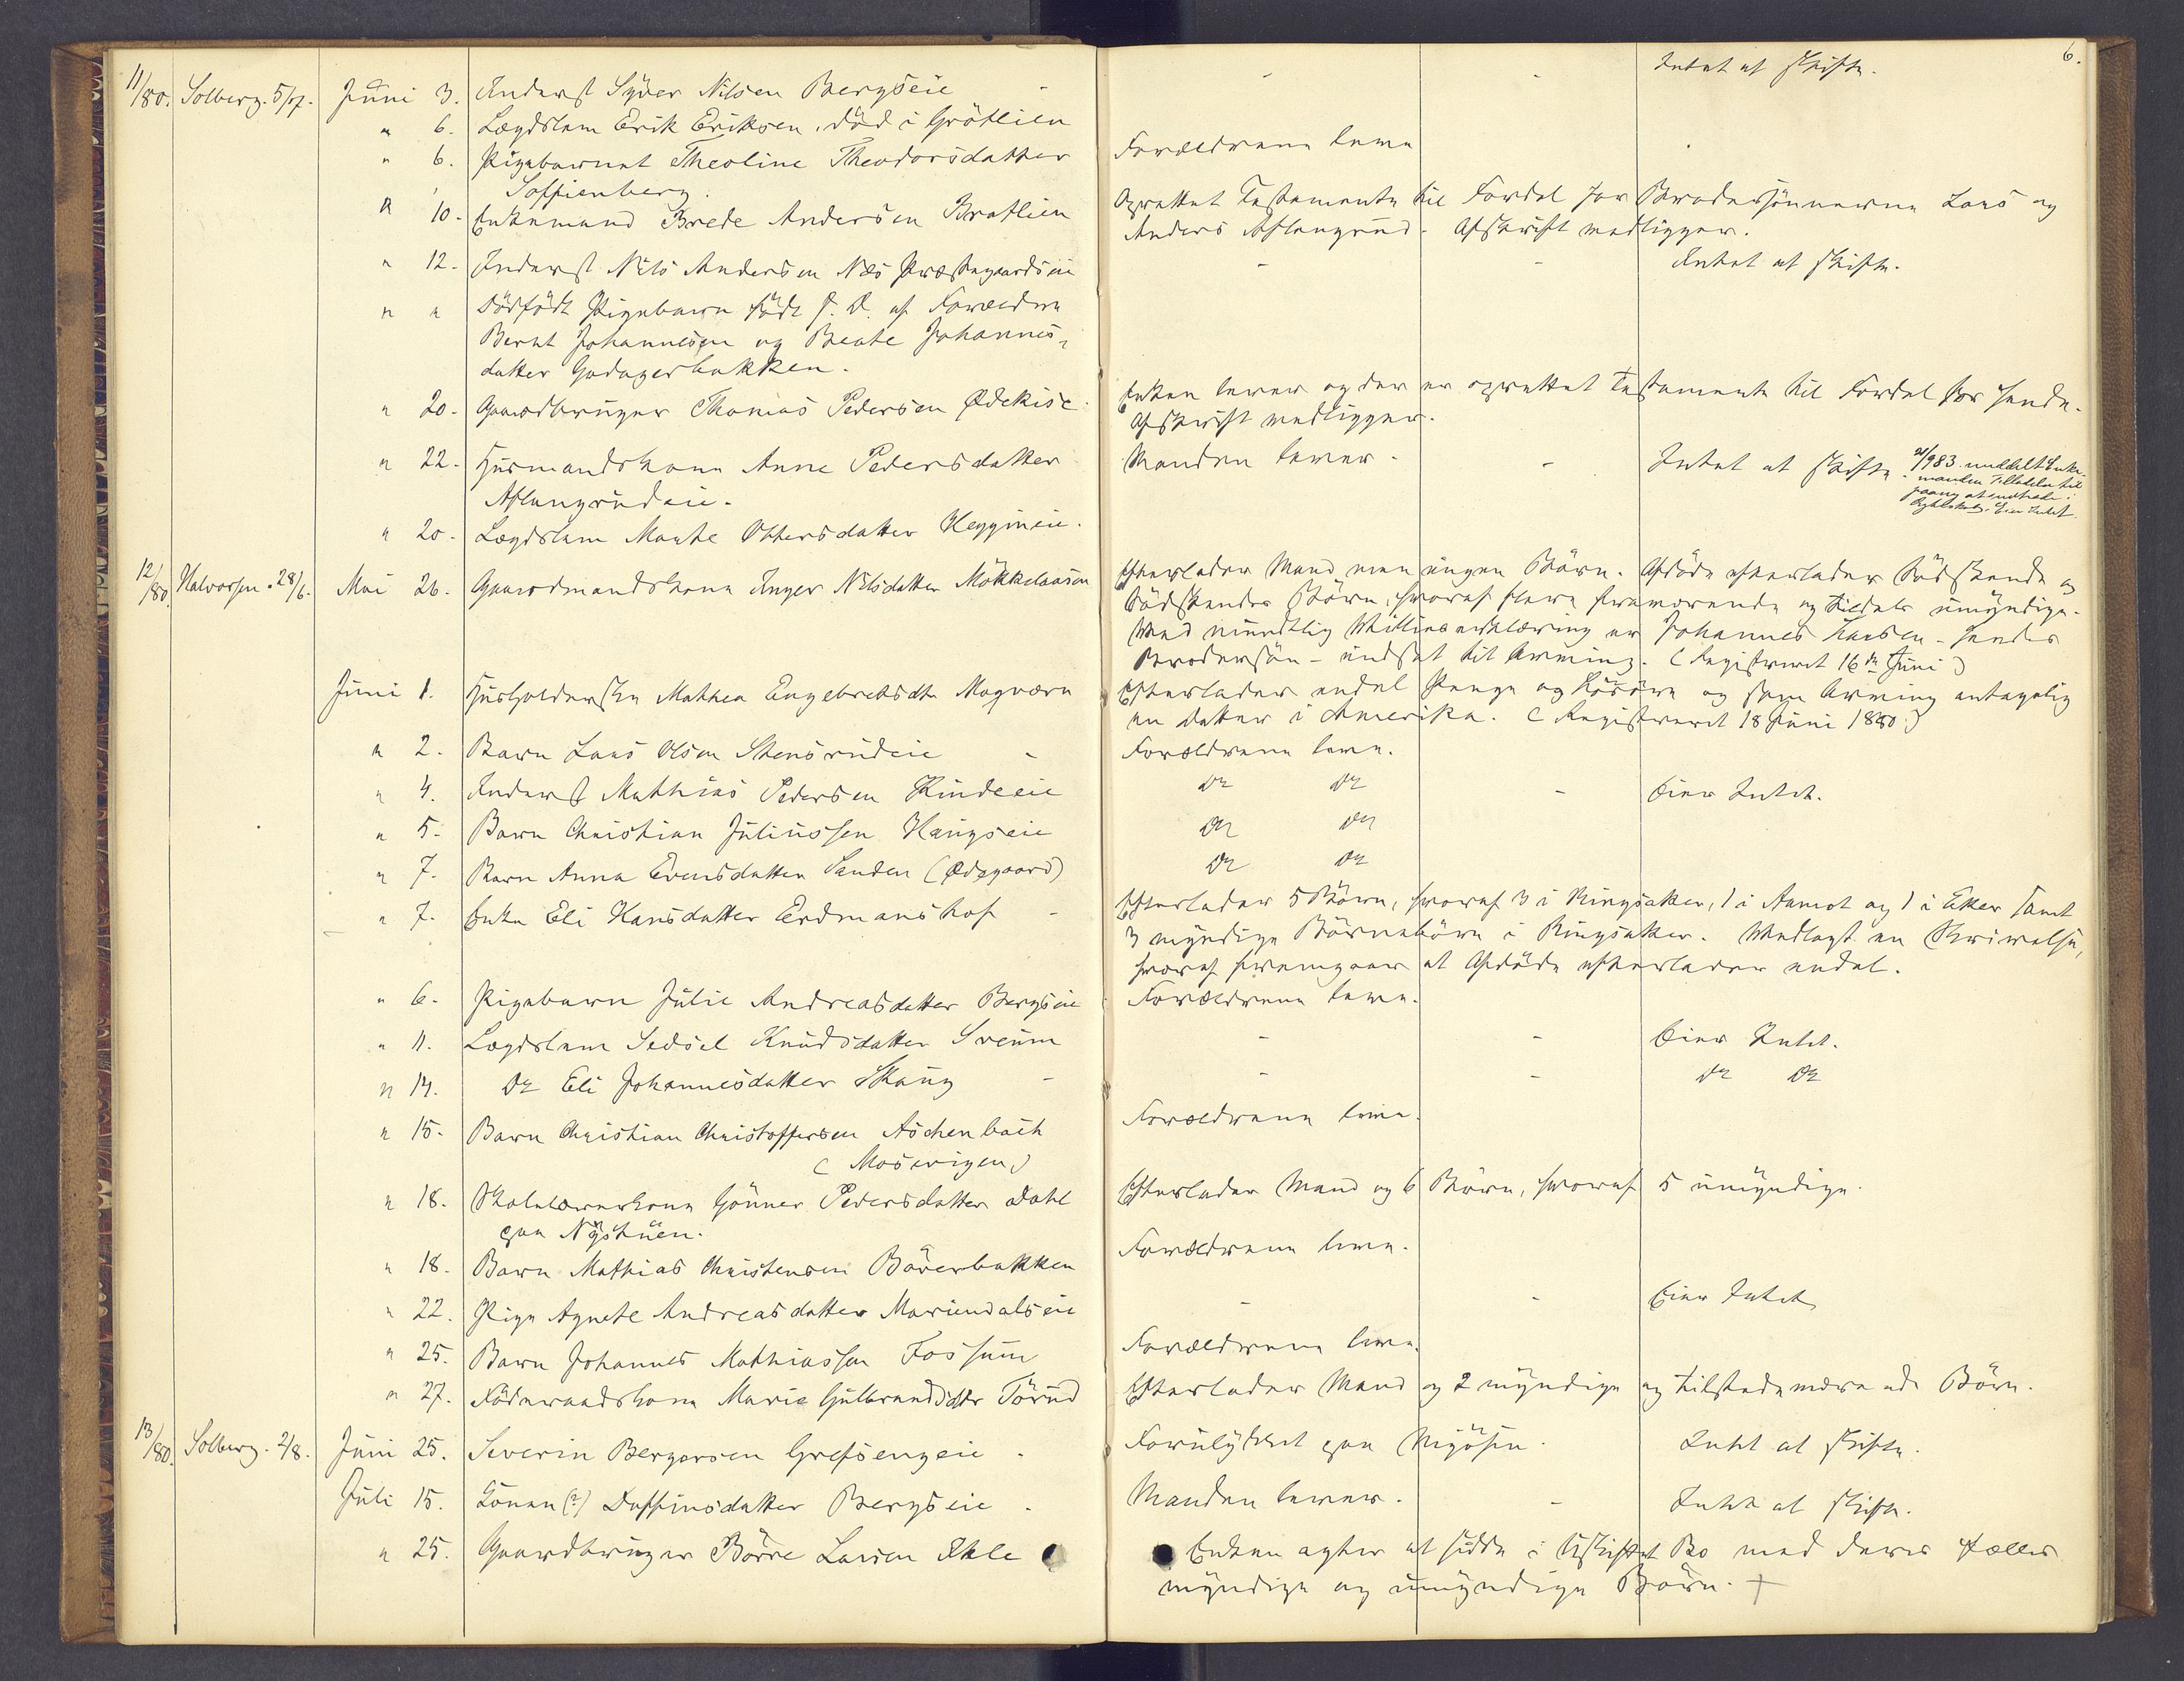 6.
11/80. Solberg. 5/7. Juni 3. Inderst Syver Nilsen Bergseie - - - Intet at skifte.
" 6. Lægdslem Erik Eriksen, död i Grötlien
" 6. Pigebarnet Theoline Theodorsdatter Forældrene leve
Soffienberg.
" 10. Enkemand Brede Andersen Bratlien Oprettet Testamente til Fordel for Brodersönnerne Lars og
Anders Aslangrud. Afskrift vedligger.
" 12. Inderst Nils Andersen Næs Præstegaardseie - - Intet at skifte.
" " Dödfödt Pigebarn födt S. D. af Forældre
Bernt Johannesen og Beate Johannes-
datter Godagerbakken.
" 20. Gaardbruger Thomas Pedersen Ødekise. Enken lever og der er oprettet Testamente til Fordel for hende.
Afskrift vedligger.
" 22. Husmandskone Anne Pedersdatter Manden lever. - Intet at skifte. 21/9 83 meddelt Enke-
manden Tilladelse til
paany at indtræde i
Ægteskab. Eier Intet.
Aslangrudeie.
" 20. Lægdslem Marthe Ottersdatter Heggineie.
12/80. Halvorsen. 28/6. Mai 26. Gaardmandskone Inger Nilsdatter Mökkelaasen Efterlader Mand men ingen Börn. Afdöde efterlader Södskende og
Södskendes Börn, hvoraf flere fraværende og tildels umyndige.
Ved mundtlig Villieserklæring er Johannes Larsen - hendes
Brodersön - indsat til Arving. (Registreret 16de Juni)
Juni 1. Husholderske Mathea Engebretsdtr Mogværn Efterlader endel Penge og Lösöre og som Arving antagelig
en Datter i Amerika. (Registreret 18 Juni 1880)
" 2. Barn Lars Olsen Stensrudeie - Forældrene leve.
" 4. Inderst Mathias Pedersen Rindeeie Do Do - Eier Intet.
" 5. Barn Christian Juliussen Haugseie Do Do
" 7. Barn Anna Evensdatter Sanden (Ødegaard) Do Do
" 7. Enke Eli Hansdatter Erdmanshof - Efterlader 5 Börn, hvoraf 3 i Ringsaker, 1 i Aamot og 1 i Eker samt
3 myndige Börnebörn i Ringsaker. Vedlagt en Skrivelse,
hvoraf fremgaar at Afdöde efterlader endel.
" 6. Pigebarn Julie Andreasdatter Bergseie Forældrene leve.
" 11. Lægdslem Sedsel Knudsdatter Sveum - - Eier Intet.
" 14. Do Eli Johannesdatter Skaug - - - Do Do
" 15. Barn Christian Christoffersen Aschenbach Forældrene leve.
(Mosevigen)
" 18. Skolelærerkone Gönner Pedersdatter Dahl Efterlader Mand og 6 Börn, hvoraf 5 umyndige.
paa Nystuen.
" 18. Barn Mathias Christensen Böverbakken Forældrene leve.
" 22. Pige Agnete Andreasdatter Mariendalseie - - Eier Intet
" 25. Barn Johannes Mathiassen Fossum Forældrene leve.
" 27. Föderaadskone Marie Gulbrandsdtr Törud Efterlader Mand og 2 myndige og tilstedeværende Börn.
13/80. Solberg. 2/8. Juni 25. Severin Bergersen Grefsengeie - Forulykket paa Mjösen. Intet at skifte.
Juli 15. Gönan (?) Daffinsdatter Bergseie - Manden lever. - Intet at skifte.
" 25. Gaardbruger Börre Larsen Ihle Enken agter at sidde i Uskiftet Bo med deres fælles
myndige og umyndige Börn. +